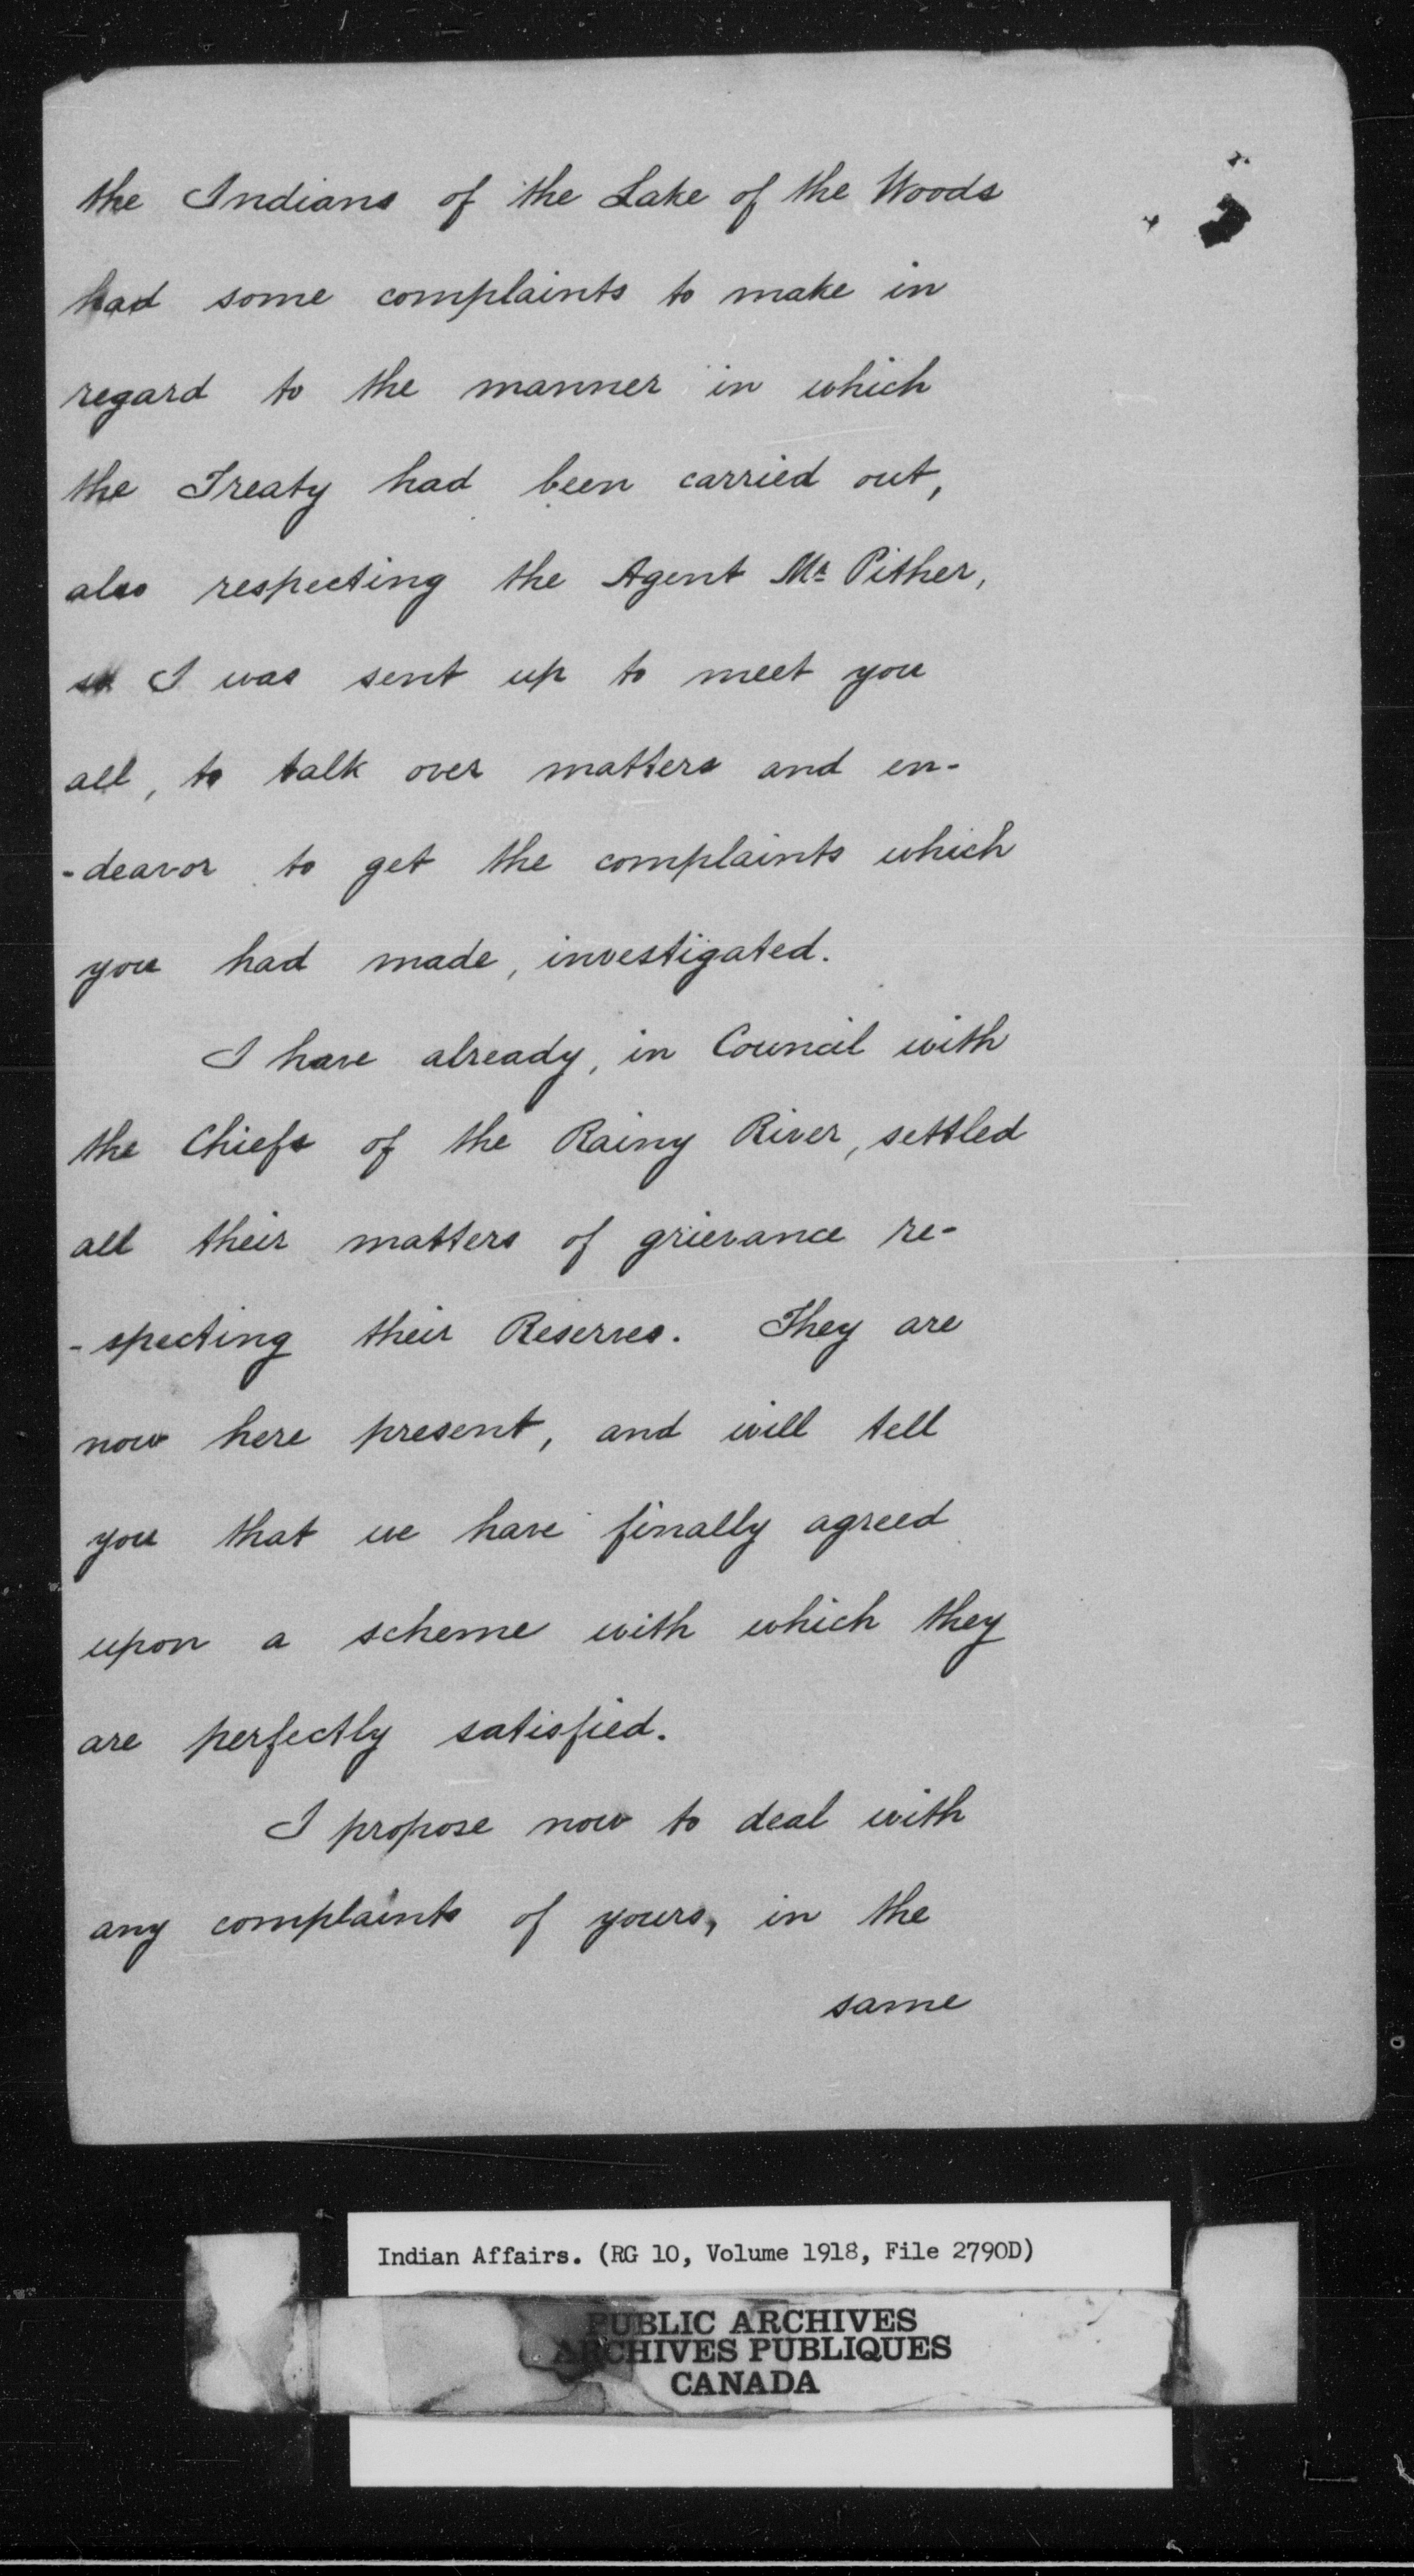 the Indians of the Lake of the Woods
had some complaints to make in
regard to the manner in which
the Treaty had been carried out,
also respecting the Agent Mr Pither,
so I was sent up to meet you
all, to talk over matters and en-
-deavor to get the complaints which
you had made, investigated.
I have already, in Council with
the Chiefs of the Rainy River, settled
all their matters of grievance re-
-specting their Reserves. They are
now here present, and will tell
you that we have finally agreed
upon a scheme with which they
are perfectly satisfied.
I propose now to deal with
any complaints of yours, in the
same
Indian Affairs. (RG 10, Volume 1918, File 2790D)
PUBLIC ARCHIVES
ARCHIVES PUBLIQUES
CANADA